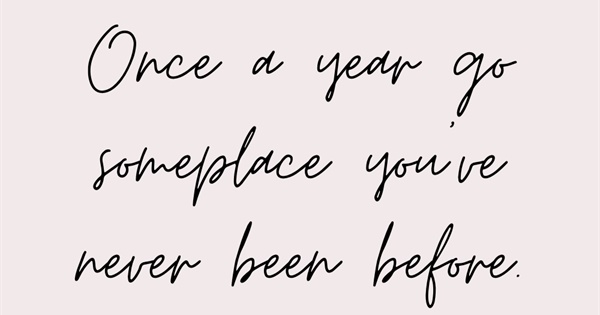 Once a year go
someplace you've
never been before.